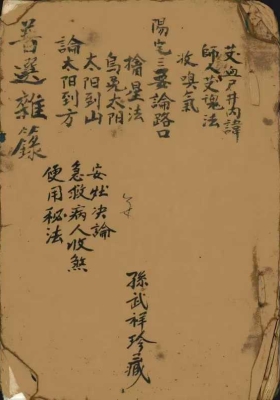 艾酒戶井内諱
師人艾魂法
收嗅氣
陽宅三要論路口
擒星法
烏兔太阳
太阳到山
論太阳到方
善選雜錄
安炷决論
急救病人收煞
便用秘法
孫武祥珍藏